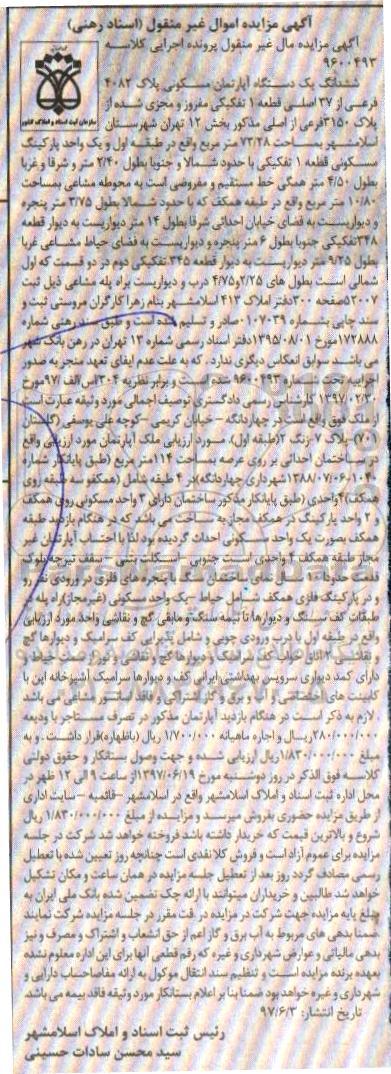 آگهی مزایده اموال غیر منقول (اسناد رهنی)
آگهی مزایده مال غیر منقول پرونده اجرایی کلاسه
۹۶۰۰۴۹۳
ششدانگ یک دستگاه آپارتمان مسکونی پلاک ۴۰۸۲
فرعی از ۳۷ اصلی قطعه ۱ تفکیکی مفروز و مجزی شده از
پلاک ۳۱۵۰فرعی از اصلی مذکور بخش ۱۲ تهران شهرستان
اسلامشهر بمساحت ۷۳/۲۸ متر مربع واقع در طبقه اول و یک واحد پارکینگ
مسکونی قطعه ۱ تفکیکی با حدود شمالا و جنوبا بطول ۲/۴۰ متر و شرقا و غربا
بطول ۴/۵۰ متر همگی خط مستقیم و مفروضی است به محوطه مشاعی بمساحت
۱۰/۸۰ متر مربع واقع در طبقه همکف که با حدود شمالا بطول ۳/۷۵ متر پنجره
و دیواریست به فضای خیابان احداثی شرقا بطول ۱۴ متر دیواریست به دیوار قطعه
۳۴۸تفکیکی جنوبا بطول ۶ متر پنجره و دیواریست به فضای حیاط مشاعی غربا
بطول ۹/۲۵ متر دیواریست به دیوار قطعه ۳۴۵ تفکیکی دوم در دو قسمت که اول
شمالی است بطول های ۲/۲۵و۴/۷۵ درب و دیواریست براه پله مشاعی ذیل ثبت
۵۳۰۰۷صفحه ۳۰۰دفتر املاک ۴۱۳ اسلامشهر بنام زهرا کارگران مروستی ثبت و
سند چاپی بشماره ۱۰۷۰۳۹صادر و تسلیم شده است و طبق سند رهنی شماره
۱۷۲۸۸۸مورخ ۱۳۹۵/۰۸/۰۱ دفتر اسناد رسمی شماره ۱۳ تهران در رهن بانک شهر
می باشد سوابق انعکاس دیگری ندارد، که به علت عدم ایفای تعهد منجر به صدور
اجراییه تحت شماره ۹۶۰۰۴۹۳ شده است و برابر نظریه ۳۰۲اس/الف/۹۷مورخ
۱۳۹۷/۰۲/۳۰ کارشناس رسمی دادگستری توصیف اجمالی مورد وثیقه عبارت است
از ملک فوق واقع است در چهاردانگه – خیابان کریمی – کوچه علی یوسفی (گلستان
۷۰۱)–پلاک ۷–زنگ ۲(طبقه اول)، مورد ارزیابی ملک آپارتمان مورد ارزیابی واقع
در ساختمان احداثی بر روی عرصه بمساحت ۱۱۴متر مربع (طبق پایانکار شماره
۱۰۴–۱۳۸۸/۰۷/۰۶شهرداری چهاردانگه)در ۴ طبقه شامل (همکفو سه طبقه روی
همکف)۴واحدی (طبق پایانکار مذکور ساختمان دارای ۳ واحد مسکونی روی همکف
و ۳ واحد پارکینگ در همکف مجاز به ساخت می باشد که در هنگام بازدید طبقه
همکف بصورت یک واحد مسکونی احداث گردیده بود لذا با احتساب آپارتمان غیر
مجاز طبقه همکف ۴ واحدی است جنوبی –اسکلت بتنی – سقف تیرچه بلوک
قدمت حدودا ۱۰ سال نمای ساختمان سنگ با پنجره های فلزی در ورودی نفر رو
و در پارکینگ فلزی همکف شامل حیاط –یک واحد مسکونی (غیر مجاز)راه پله و
طبقات کف سنگ و دیوارها تا نیمه سنگ و مابقی گچ و نقاشی واحد مورد ارزیابی
واقع در طبقه اول با درب ورودی چوبی و شامل پذیرایی کف سرامیک و دیوارها گچ
و نقاشی ۲ اتاق خواب کف سرامیک و دیوارها گچ و نقاشی و نورگیر سمت حیاط و
دارای کمد دیواری سرویس بهداشتی ایرانی کف و دیوارها سرامیک آشپزخانه اپن با
کابینت های اختصاصی و آب و برق و گاز اشتراکی و فاقد آسانسور مشاعی می باشد
. لازم به ذکر است در هنگام بازدید آپارتمان مذکور در تصرف مستاجر با ودیعه
۲۸۰/۰۰۰/۰۰۰ریال و اجاره ماهیانه ۱/۷۰۰/۰۰۰ ریال (باظهاره)قرار داشت . و به
مبلغ ۱/۸۳۰/۰۰۰/۰۰۰ریال ارزیابی شده و جهت وصول بستانکار و حقوق دولتی
کلاسه فوق الذکر در روز دوشنبه مورخ ۱۳۹۷/۰۶/۱۹از ساعت ۹ الی ۱۲ ظهر در
محل اداره ثبت اسناد و املاک اسلامشهر واقع در اسلامشهر –قائمیه –سایت اداری
از طریق مزایده حضوری بفروش میرسد و مزایده از مبلغ ۱/۸۳۰/۰۰۰/۰۰۰ ریال
شروع و بالاترین قیمت که خریدار داشته باشد فروخته خواهد شد شرکت در جلسه
مزایده برای عموم آزاد است و فروش کلا نقدی است چنانچه روز تعیین شده با تعطیل
رسمی مصادف گردد روز بعد از تعطیل جلسه مزایده در همان ساعت و مکان تشکیل
خواهد شد طالبین و خریداران میتوانند با ارائه چک تضمین شده بانک ملی ایران به
مبلغ پایه مزایده جهت شرکت در مزایده در وقت مقرر در جلسه مزایده شرکت نمایند
ضمنا بدهی های مربوط به آب برق و گاز اعم از حق انشعاب و اشتراک و مصرف و نیز
بدهی مالیاتی و عوارض شهرداری و غیره که رقم قطعی آنها برای این اداره معلوم نشده
بعهده برنده مزایده است و تنظیم سند انتقال موکول به ارائه مفاصاحساب دارایی و
شهرداری و غیره خواهد بود ضمنا بنا بر اعلام بستانکار مورد وثیقه فاقد بیمه می باشد
تاریخ انتشار: ۹۷/۶/۳
رئیس ثبت اسناد و املاک اسلامشهر
سید محسن سادات حسینی
سازمان ثبت اسناد و املاک کشور